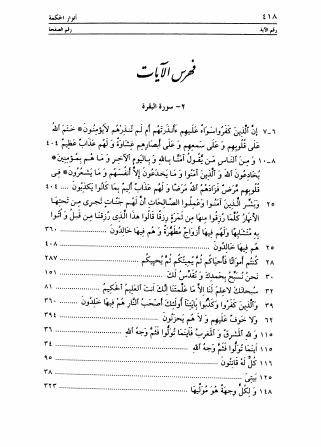 ٤١٨
أنوار الحكمة
رقم الآية
رقم الصفحة
فهرس الآيات
٢- سورة البقرة
٦-٧ إنَّ الَّذينَ كَفَروا سَواءٌ عَلَيهِم ءَأَنذَرتَهُم أم لَم تُنذِرهُم لا يُؤمِنُونَ * خَتَمَ اللهُ
عَلى قُلُوبِهِم وَ عَلى سَمعِهِم وَ عَلى أبصارِهِم غِشاوَةٌ وَ لَهُم عَذابٌ عَظيمٌ ٤٠٤
٨-١٠ وَ مِنَ النّاسِ مَن يَقُولُ آمَنّا بِاللهِ وَ بِاليَومِ الآخِرِ وَ ما هُم بِمُؤمِنينَ *
يُخادِعُونَ اللهَ وَ الَّذينَ آمَنُوا وَ ما يَخدَعُونَ إلاّ أنفُسَهُم وَ ما يَشعُرُونَ * فى
قُلُوبِهِم مَرَضٌ فَزادَهُمُ اللهُ مَرَضًا وَ لَهُم عَذابٌ أليمٌ بِما كانُوا يَكذِبُونَ .... ٤٠٤
٢٥ وَ بَشِّرِ الَّذينَ آمَنُوا وَ عَمِلُوا الصّالِحاتِ أنَّ لَهُم جَنّاتٍ تَجرى مِن تَحتِهَا
الأنهارُ كُلَّما رُزِقُوا مِنها مِن ثَمَرَةٍ رِزقًا قالُوا هذَا الَّذى رُزِقنا مِن قَبلُ وَ أُتُوا
بِهِ مُتَشابِهًا وَ لَهُم فيها أزواجٌ مُطَهَّرَةٌ وَ هُم فيها خالِدُونَ .... ٣٦٠
٢٥ هُم فيها خالِدُونَ .... ٤٠٨
٢٨ كُنتُم أمواتًا فَأحياكُم ثُمَّ يُميتُكُم ثُمَّ يُحييكُم .... ٢٨٧
٣٠ نَحنُ نُسَبِّحُ بِحَمدِكَ وَ نُقَدِّسُ لَكَ .... ١٥١
٣٢ سُبحانَكَ لا عِلمَ لَنا إلاّ ما عَلَّمتَنا إنَّكَ أنتَ العَليمُ الحَكيمُ .... ٨١
٣٩ وَ الَّذينَ كَفَرُوا وَ كَذَّبُوا بِآياتِنا أُولئِكَ أصحابُ النّارِ هُم فيها خلِدُونَ ٣٦٠
٦٢ وَ لا خَوفٌ عَلَيهِم وَ لا هُم يَحزَنُونَ .... ٣٩٤
١١٥ وَ لِلّهِ المَشرِقُ وَ المَغرِبُ فَأينَما تُوَلُّوا فَثَمَّ وَجهُ اللهِ .... ٦٦
١١٥ أينَما تُوَلُّوا فَثَمَّ وَجهُ اللهِ .... ٣٤
١١٦ كُلٌّ لَهُ قانِتُونَ .... ٩٥
١٢٥ بَيتِىَ .... ٣٨
١٤٨ وَ لِكُلٍّ وِجهَةٌ هُوَ مُوَلّيها .... ٣٢٣